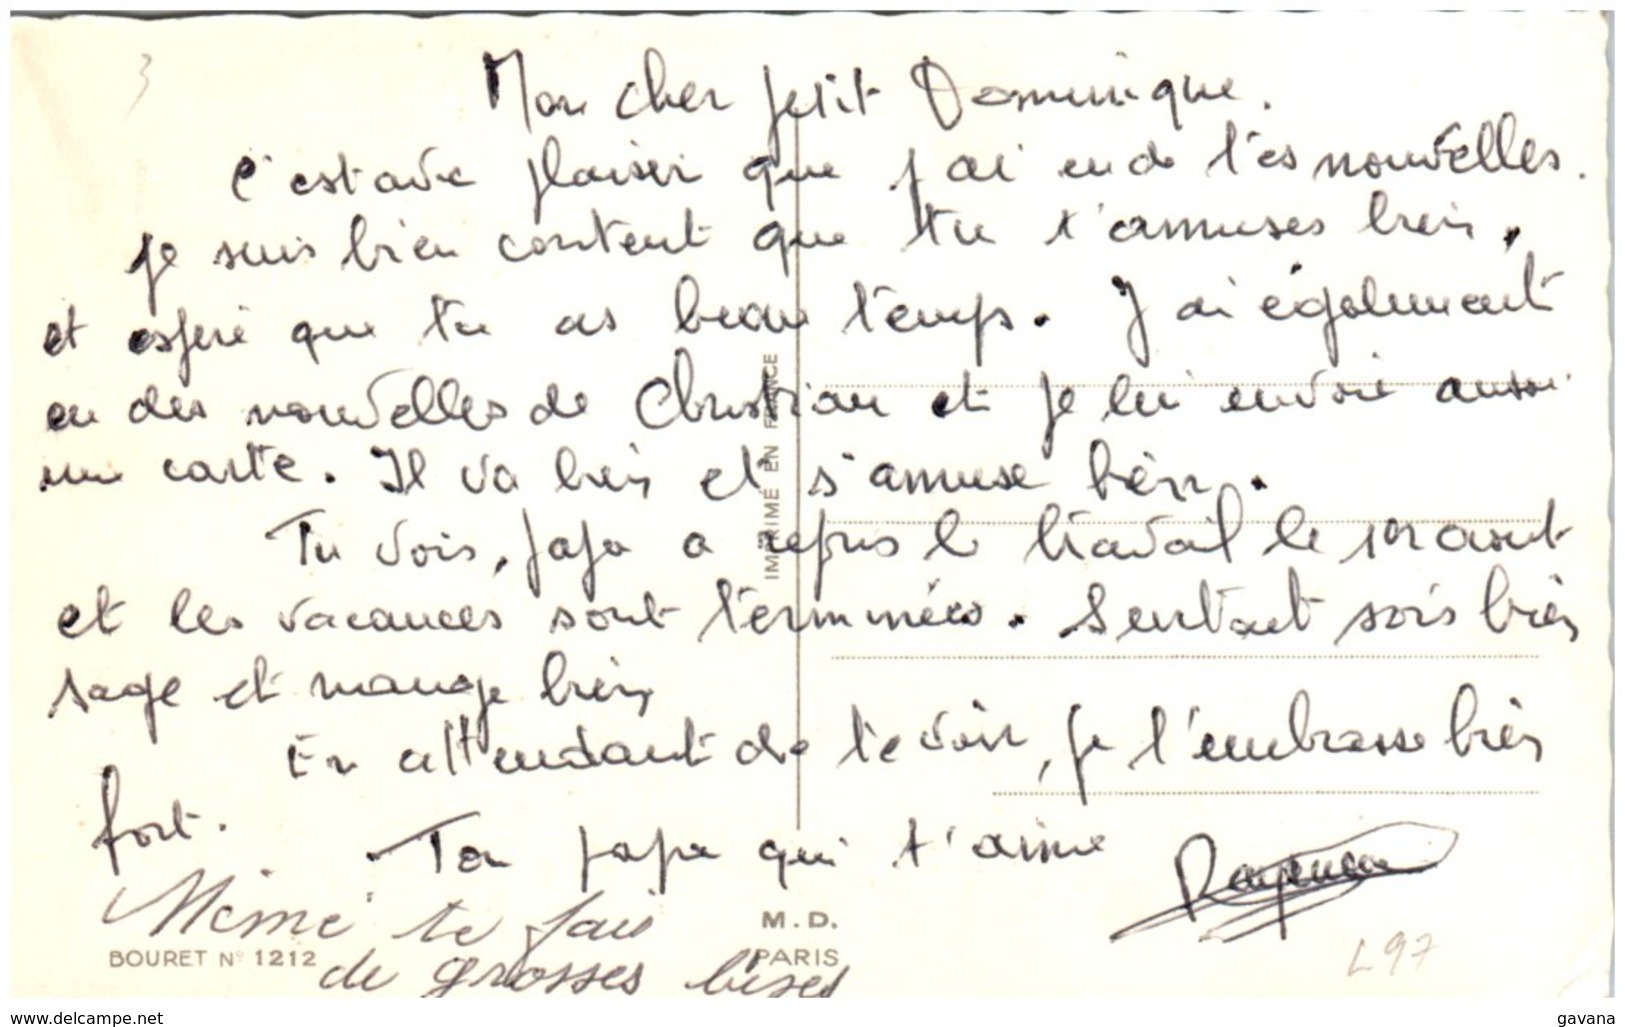 3
Mon cher petit Dominique.
C'est avec plaisir que j'ai eu de tes nouvelles.
Je suis bien content que tu t'amuses bien,
et espère que tu as beau temps. J'ai également
eu des nouvelles de Christian et je lui envoie aussi
une carte. Il va bien et s'amuse bien.
Tu vois, papa a repris le travail le 1er aout
et les vacances sont terminées. Surtout sois bien
sage et mange bien
En attendant de te voir, je t'embrasse bien
fort.
Ton papa qui t'aime
Mémé te fais
de grosses bises
IMPRIMÉ EN FRANCE
M. D.
PARIS
BOURET Nº 1212
L97
www.delcampe.net
gavana